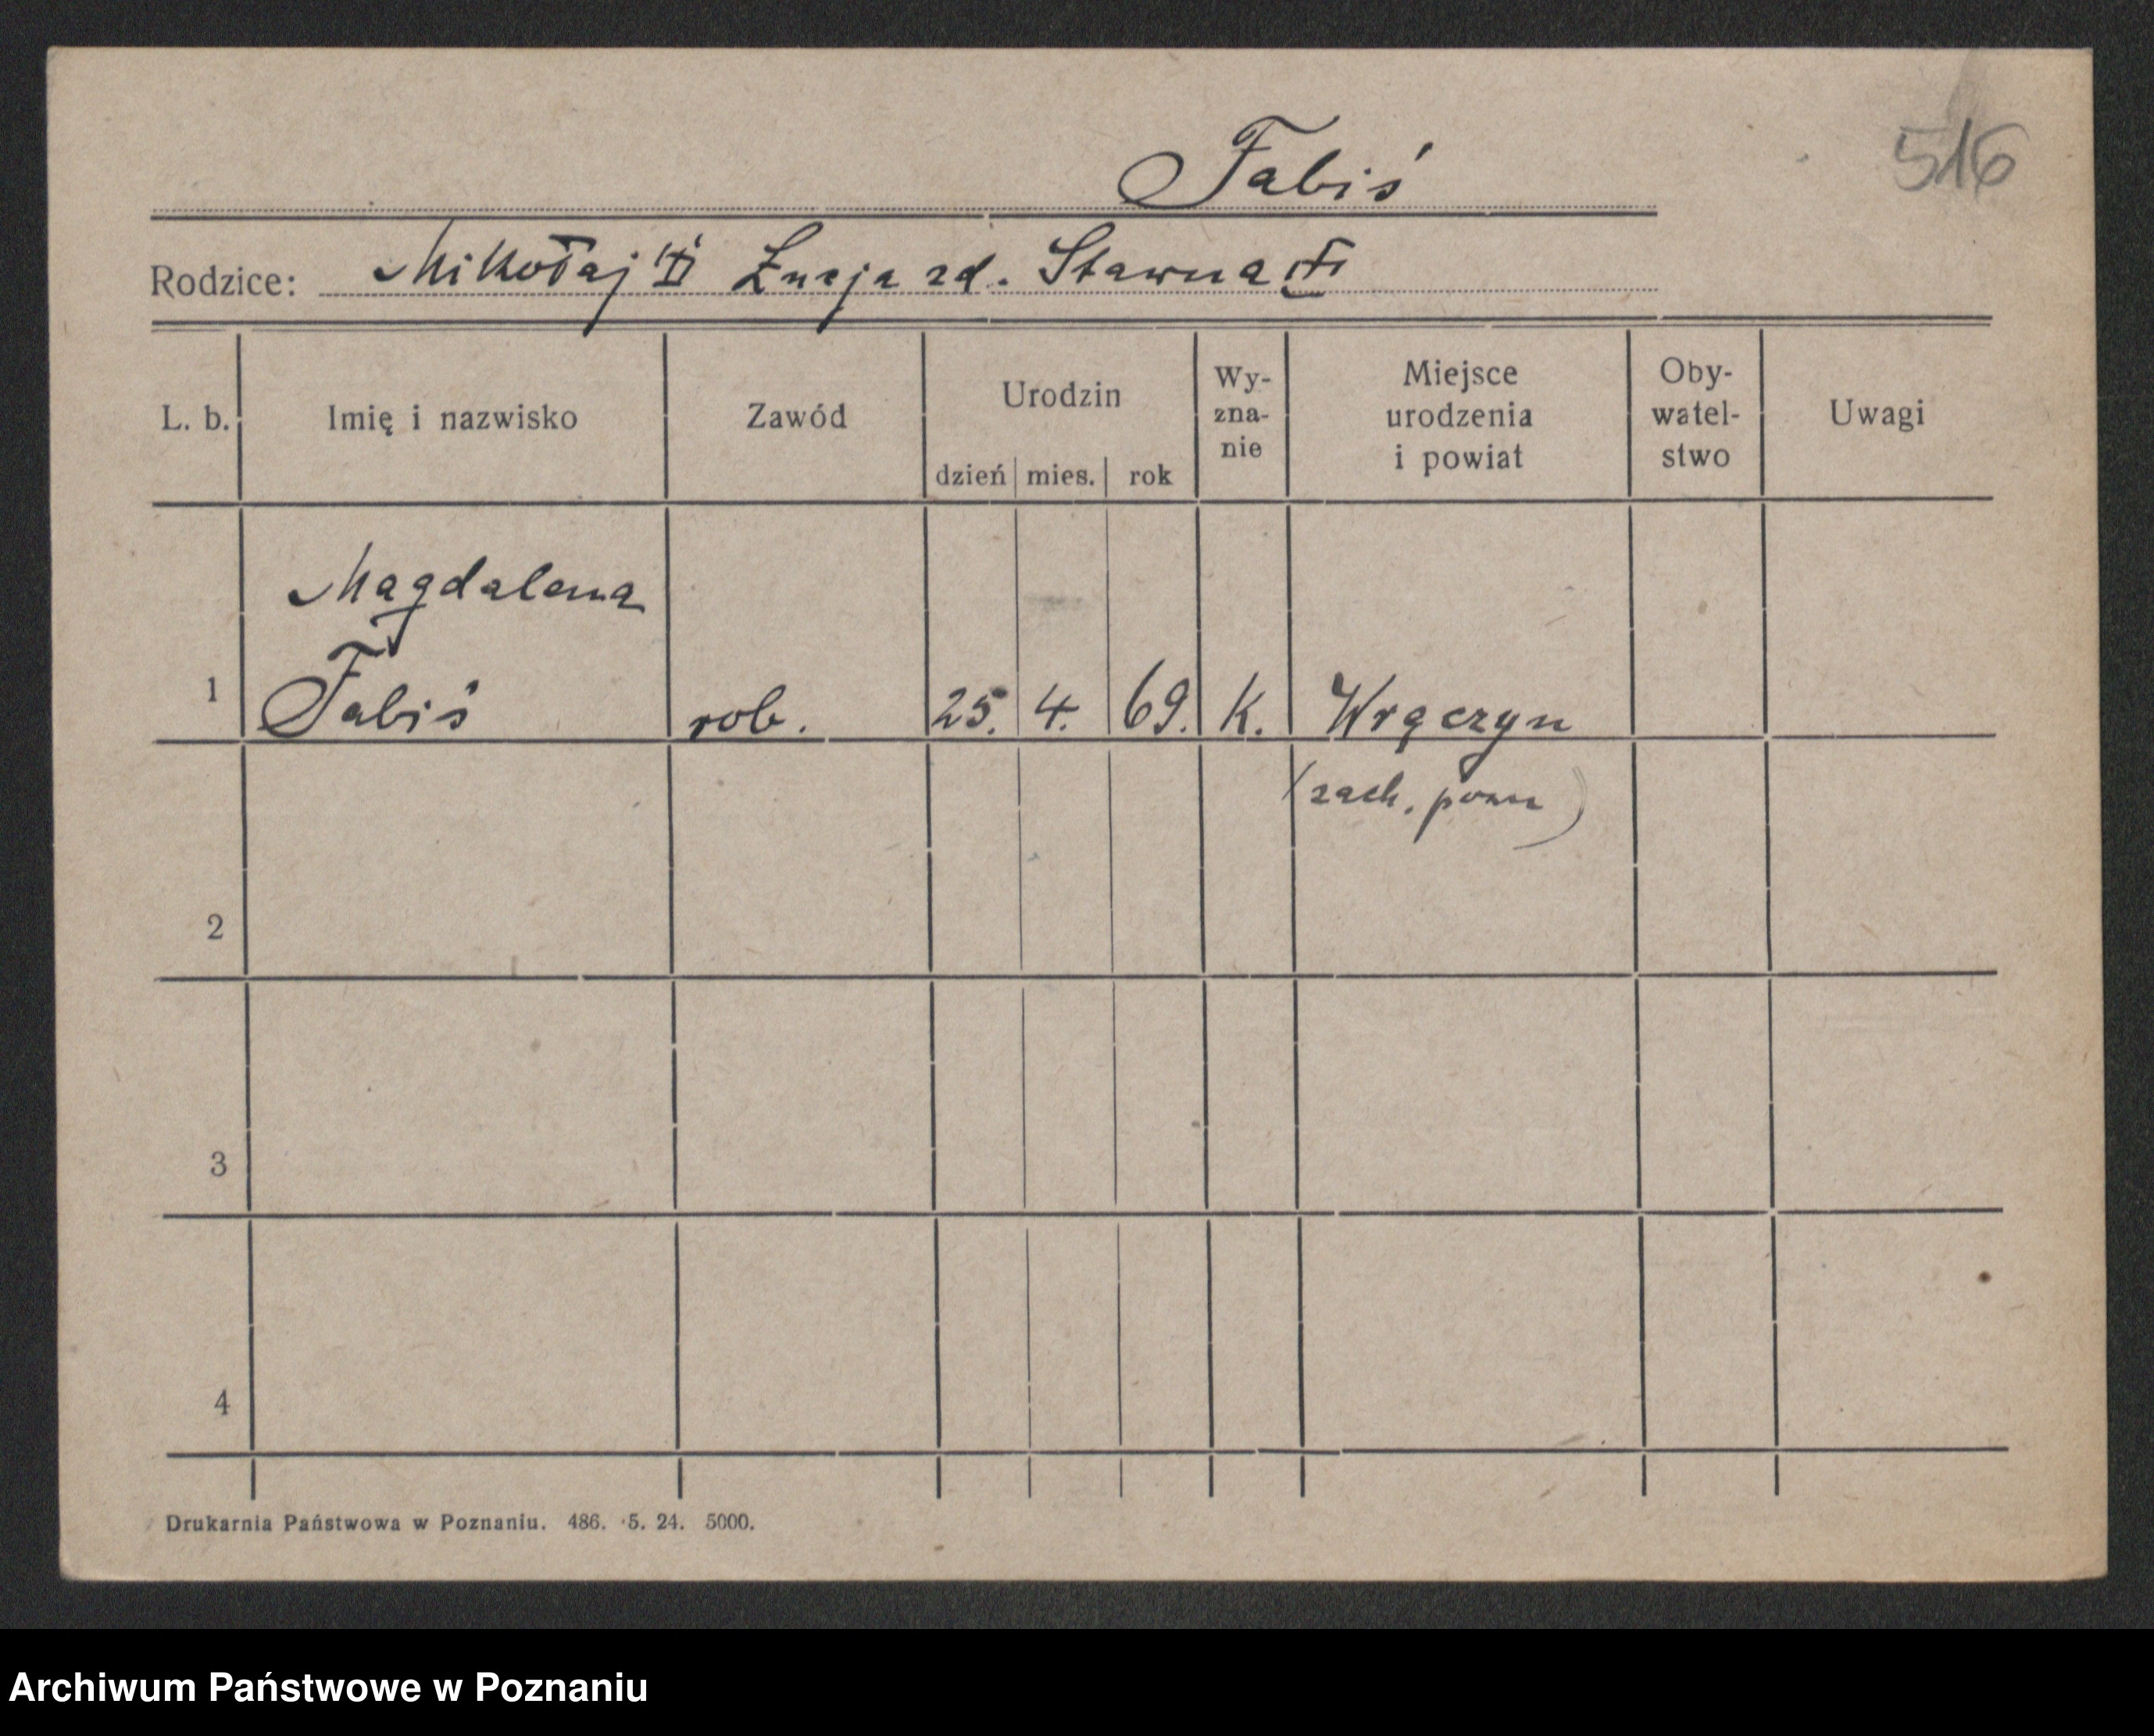 516
Fabiś
Rodzice: Mikołaj Łucja zd. Stawna
L. b. Imię i nazwisko Zawód Urodzin dzień mies. rok Wy-zna-nie Miejsce urodzenia i powiat Oby-watel-stwo Uwagi
Magdalena
1 Fabiś rob. 25. 4. 69. k. Wrączyn
(zach. pozn)
2
3
4
Drukarnia Państwowa w Poznaniu. 486. 5. 24. 5000.
Archiwum Państwowe w Poznaniu